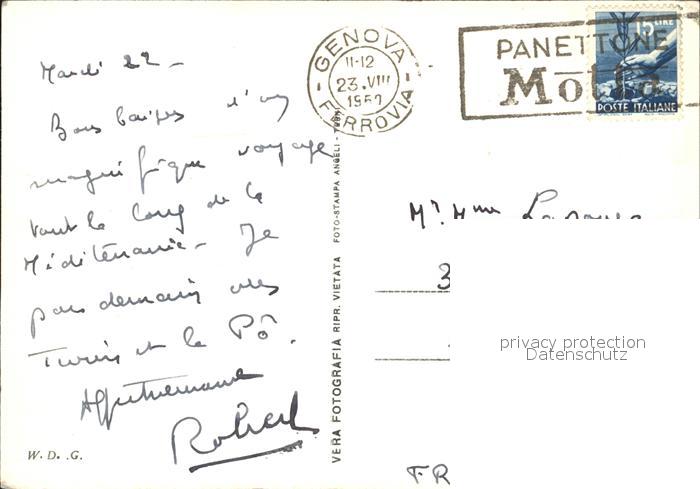 Mardi 22 –
Bons baisers d'un
magnifique voyage
tout le long de la
Méditerranée – Je
pars demain vers
Turin et le Pô.
Affectueusement
Robert
W. D. .G.
VERA FOTOGRAFIA RIPR. VIETATA FOTO-STAMPA ANGELI -
- GENOVA -
11-12
23.VIII
FERROVIA
PANETTONE
Motta
15 LIRE
POSTE ITALIANE
Mr. Mme
3
privacy protection
Datenschutz
FR